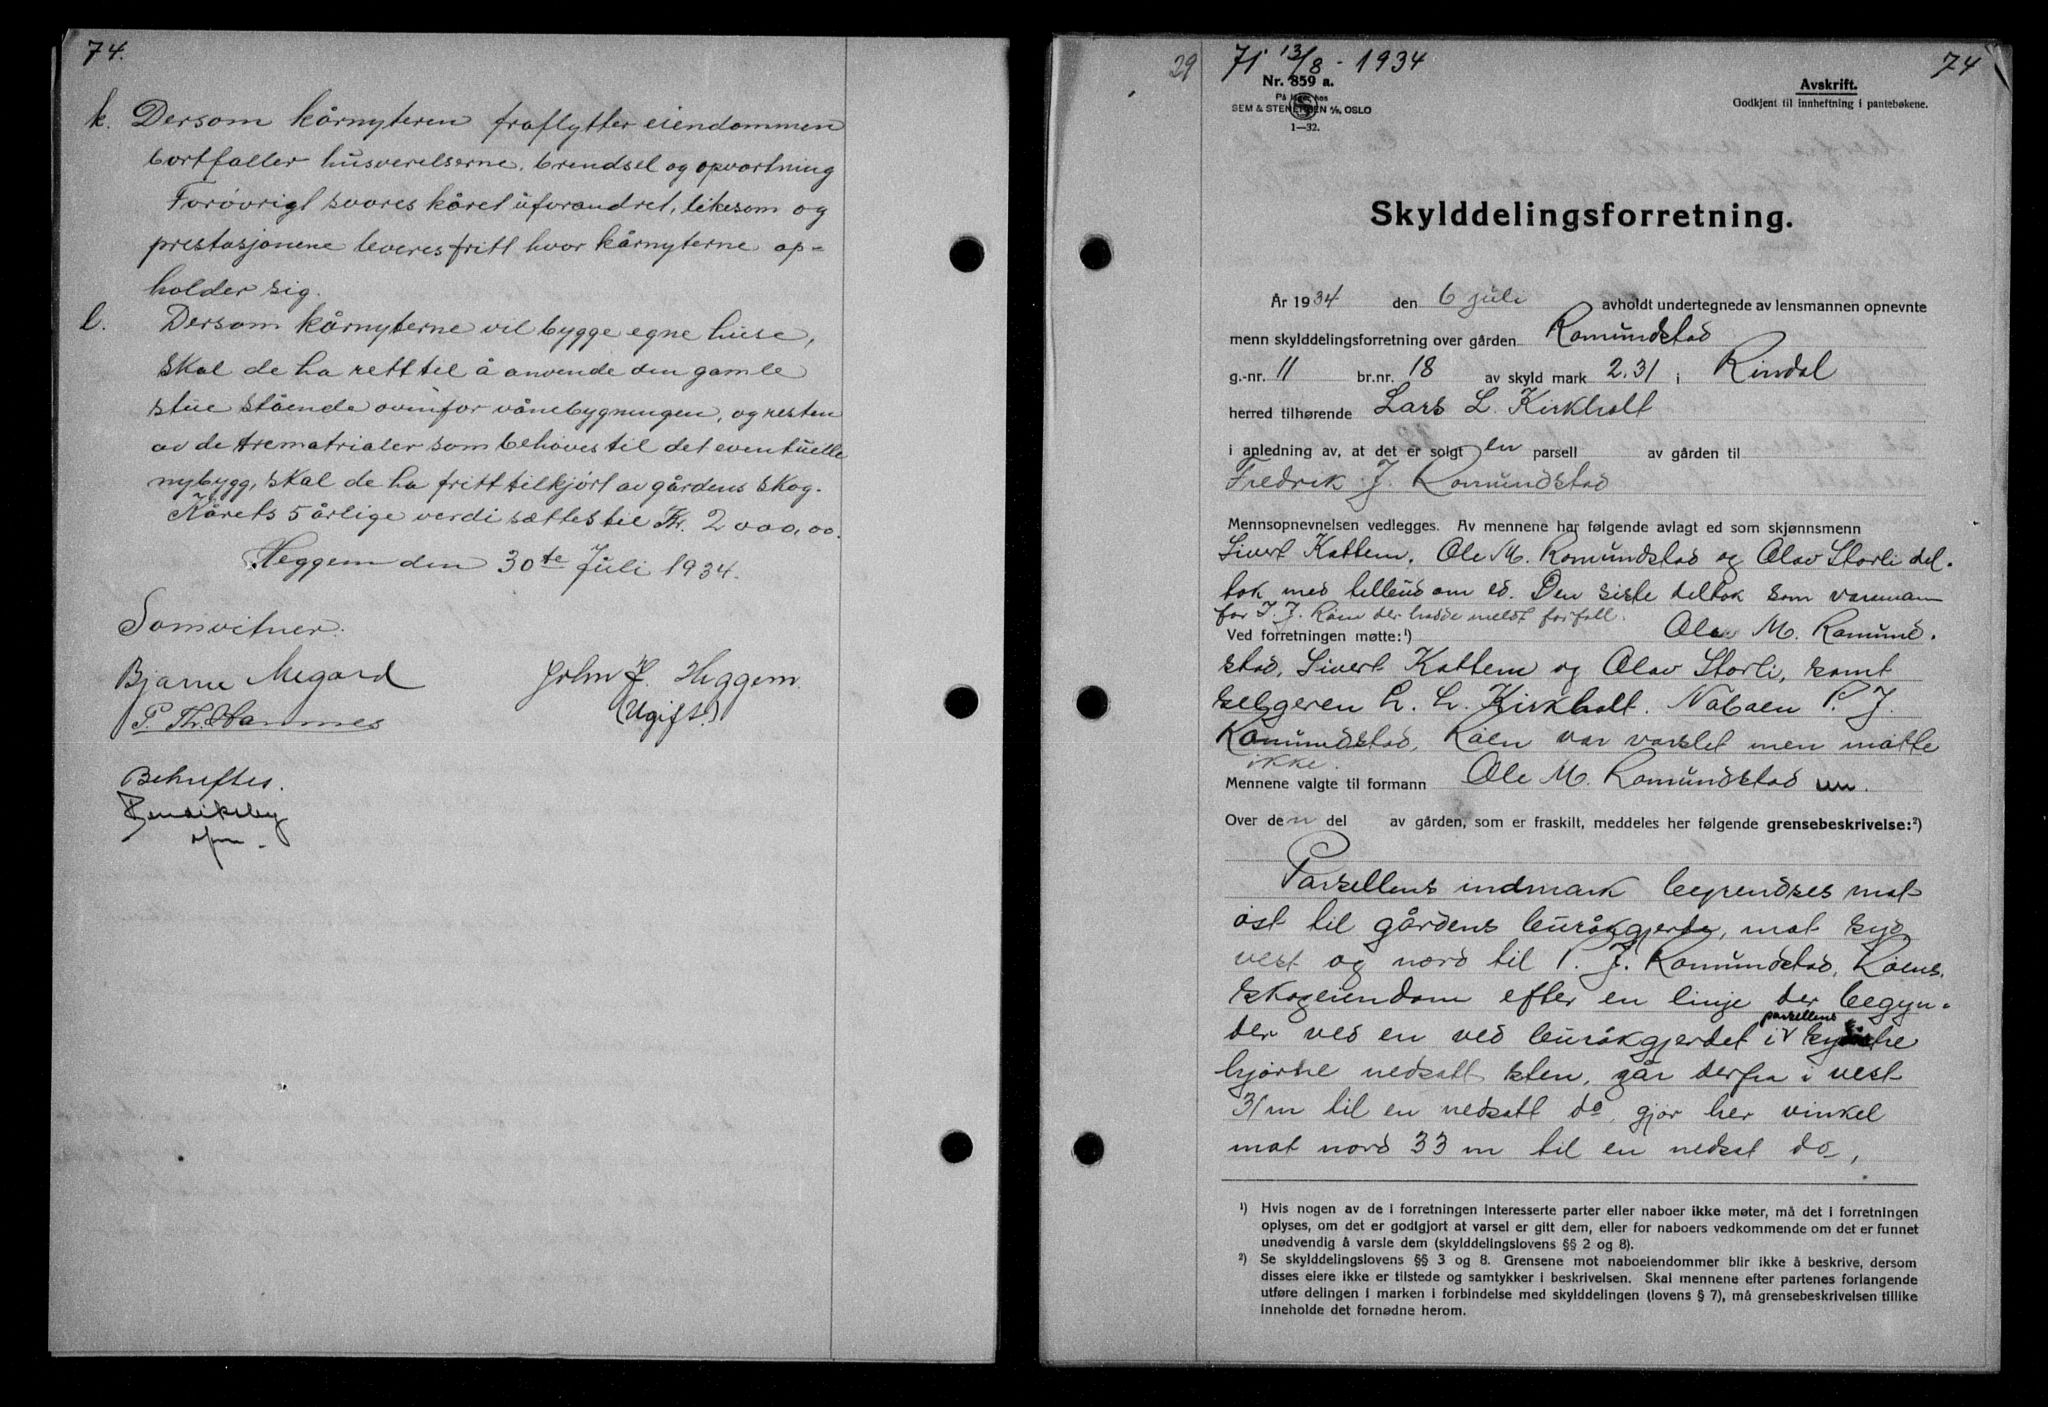 74.
k. Dersom kårnyteren fraflytter eiendommen
bortfaller husverelserne, brendsel og opvartning
Forøvrigt svares kåret uforandret, likesom og
prestasjonene leveres fritt hvor kårnyterne op-
holder sig.
l. Dersom kårnyterne vil bygge egne huse,
skal de ha rett til å anvende den gamle
stue stående ovenfor vånebygningen, og resten
av de trematrialer som behøves til det eventuelle
nybygg, skal de ha fritt tilkjørt av gårdens skog.
Kårets 5 årlige verdi sættes til Kr. 2000,00.
Heggem den 30te Juli 1934.
Som vitner.
Bjarne Megard
John J. Heggem
P. Th. Hammes
(Ugift.)
Bekreftes.
29 71 13/8 - 1934 74
Nr. 859 a.
På lager hos
SEM & STENERSEN A/S, OSLO
1—32.
Avskrift.
Godkjent til innheftning i pantebøkene.
Skylddelingsforretning.
År 1934 den 6 juli avholdt undertegnede av lensmannen opnevnte
menn skylddelingsforretning over gården Romundstad
g.-nr. 11 br.nr. 18 av skyld mark 2.31 i Rindal
herred tilhørende Lars L. Kirkholt
i anledning av, at det er solgt en parsell av gården til
Fredrik J. Romundstad
Mennsopnevnelsen vedlegges. Av mennene har følgende avlagt ed som skjønnsmenn
Sivert Kattem, Ole M. Romundstad og Olav Storli del-
tok med tilbud om ed. Den siste deltok som varamann
for J. J. Røen der hadde meldt forfall.
Ved forretningen møtte:¹) Ola M. Romund-
stad, Sivert Kattem og Olav Storli, samt
selgeren L. L. Kirkholt. Naboen P. J.
Romundstad, Røen var varslet men møtte
ikke.
Mennene valgte til formann Ole M. Romundstad
Over den del av gården, som er fraskilt, meddeles her følgende grensebeskrivelse:²)
Parsellens indmark begrendses mot
øst til gårdens buråkgjerde, mot syd
vest og nord til P. J. Romundstad, Røens
skogeiendom efter en linje der begyn-
der ved en ved buråkgjerdet i parsellens sydøstre
hjørne nedsatt sten, går derfra i vest
31 m til en nedsatt do, gjør her vinkel
mot nord 33 m til en nedsat do,
¹) Hvis nogen av de i forretningen interesserte parter eller naboer ikke møter, må det i forretningen
oplyses, om det er godtgjort at varsel er gitt dem, eller for naboers vedkommende om det er funnet
unødvendig å varsle dem (skylddelingslovens §§ 2 og 8).
²) Se skylddelingslovens §§ 3 og 8. Grensene mot naboeiendommer blir ikke å beskrive, dersom
disses eiere ikke er tilstede og samtykker i beskrivelsen. Skal mennene efter partenes forlangende
utføre delingen i marken i forbindelse med skylddelingen (lovens § 7), må grensebeskrivelsen tillike
inneholde det fornødne herom.